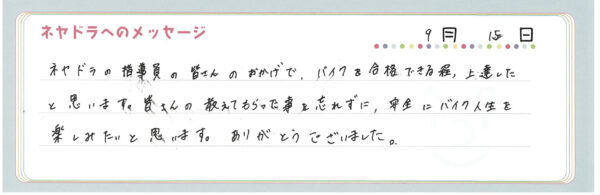 ネヤドラへのメッセージ
9月 15日
ネヤドラの指導員の皆さんのおかげで、バイクを合格できる程、上達した
と思います。皆さんの教えてもらった事を忘れずに、安全にバイク人生を
楽しみたいと思います。ありがとうございました。